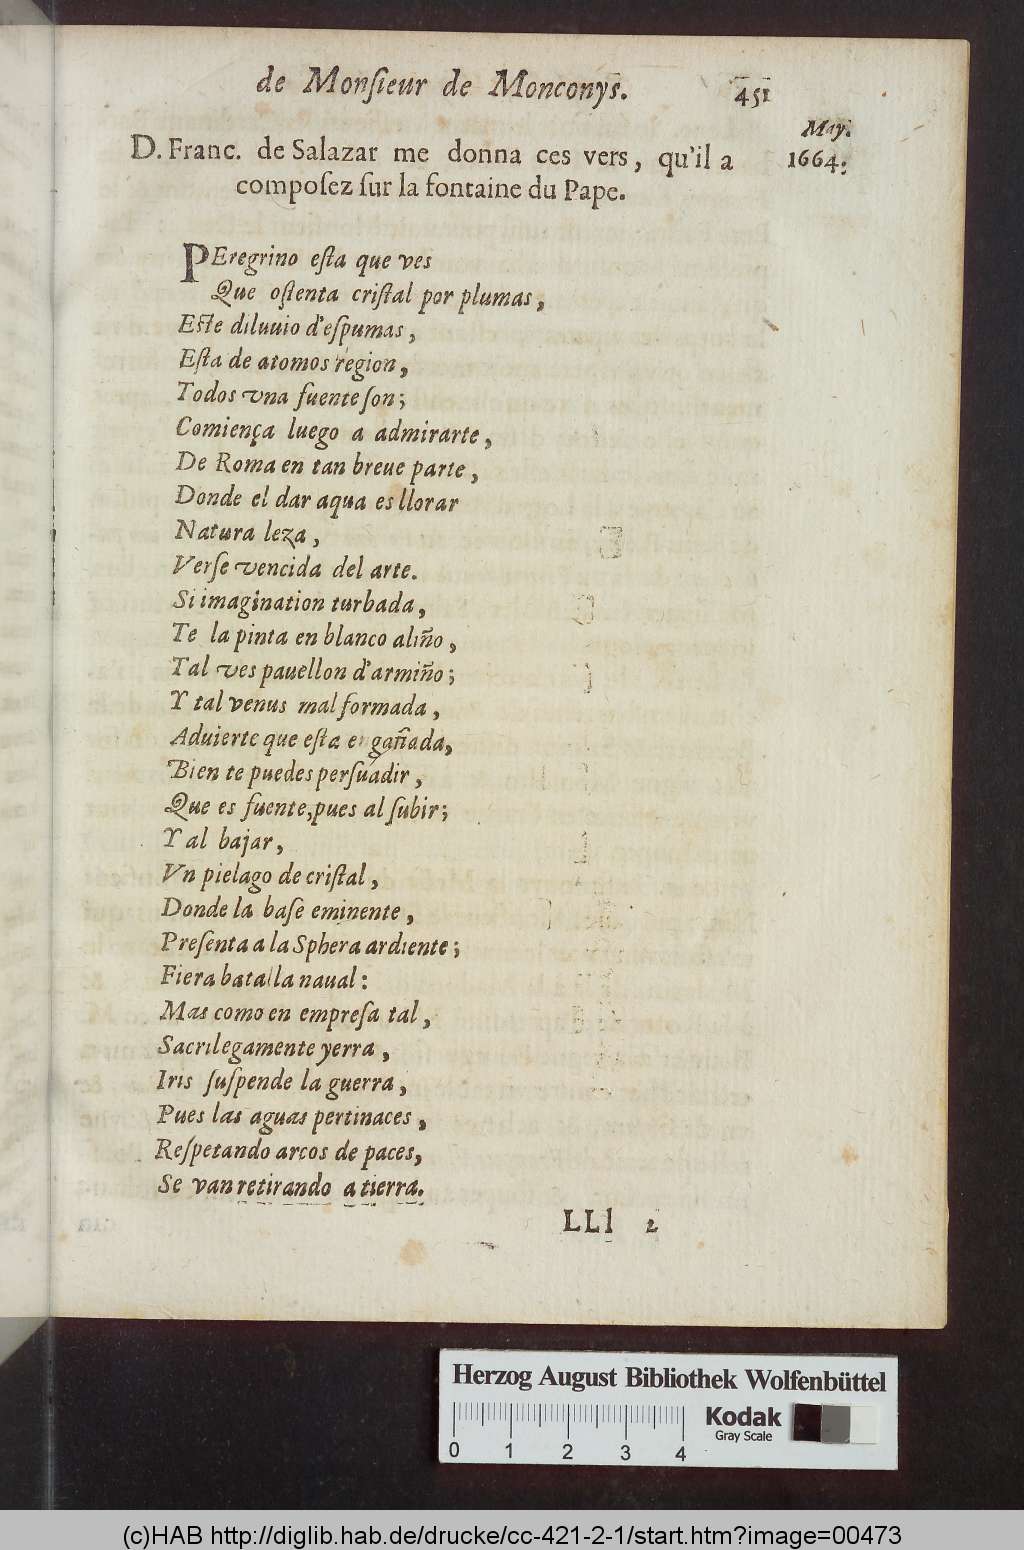 de Monſieur de Monconys.
451
May.
1664.
D. Franc. de Salazar me donna ces vers, qu'il a
compoſez ſur la fontaine du Pape.
PEregrino eſta que ves
Que oſtenta criſtal por plumas,
Eſte diluuio d'eſpumas,
Eſta de atomos region,
Todos vna fuente ſon;
Comiença luego a admirarte,
De Roma en tan breue parte,
Donde el dar aqua es llorar
Natura leza,
Verſe vencida del arte.
Si imagination turbada,
Te la pinta en blanco aliño,
Tal ves pauellon d'armiño;
Y tal venus mal formada,
Aduierte que eſta engañada,
Bien te puedes perſuadir,
Que es fuente, pues al ſubir;
Y al bajar,
Vn pielago de criſtal,
Donde la baſe eminente,
Preſenta a la Sphera ardiente;
Fiera batalla naual:
Mas como en empreſa tal,
Sacrilegamente yerra,
Iris ſuſpende la guerra,
Pues las aguas pertinaces,
Reſpetando arcos de paces,
Se van retirando a tierra.
LLl 2
Herzog August Bibliothek Wolfenbüttel
Kodak
Gray Scale
0 1 2 3 4
(c)HAB http://diglib.hab.de/drucke/cc-421-2-1/start.htm?image=00473